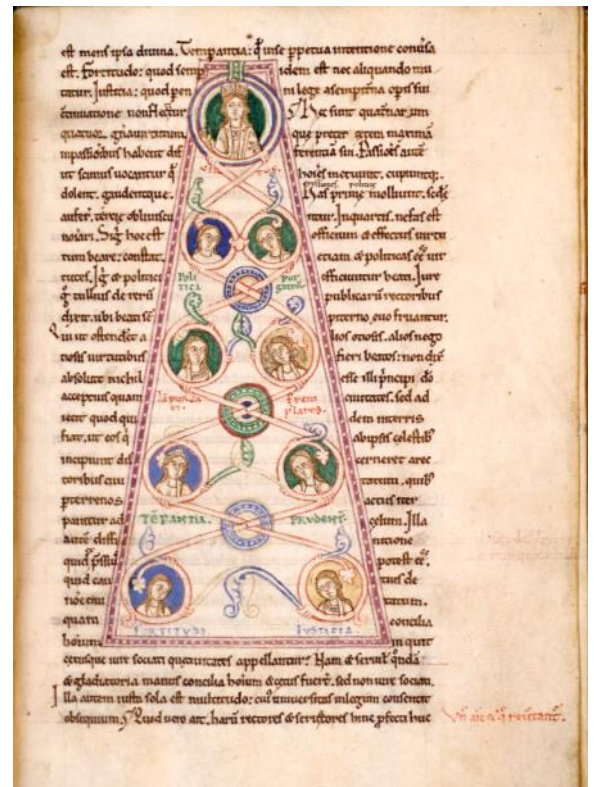 est mens ipsa divina. Temperantia: q̇ in se ppetua intentione conuersa
est. Fortitudo: quod semp idem est nec aliquando mu
tatur. Iusticia: quod perenni lege a sempiterna operis sui
continuatione non flectitur. Hec sunt quaternarum
quatuor genera uirtutum que preter cetera maximā
in passionibus habent differentiā sui. Passiões autē
ut scimus uocantur q̇ hoiēs metuunt. cupiuntq;
dolent. gaudentque. Has prime molliunt. secde
auferunt. tercie obliuiscuntur. In quartis. nefas est
nominari. Si g̊ hoc est officium & effectus uirtu
tum beare: constat. etiam & politicas eē uir
tutes. Ig̊ & politicis efficiuntur beati. Iure
g̊ tullius de rerū publicarū rectoribus
dixit. ubi beati seuo sempiterno fruantur.
Qui ut ostenderet alios otiosis. alios nego
tiosis uirtutibus fieri beatos: non dixit
absolute nichil esse illi principi dō
acceptius quam ciuitates. sed ad
iecit quod quidem in terris
fiat. ut eos q̇ ab ipsis celestib
incipiunt discerneret a rec
toribus ciuitatum. quib
p terrenos actus iter
paratur ad celum. Illa
autē diffinitione
quid pressius potest eē.
quid cautius de
noīe ciuitatum.
quam concilia
hoium inquit
cetusque iure sociati que ciuitates appellantur: Nam & seruilis quondā
& gladiatoria manus concilia hoium & cetus fuerē. sed non iure sociati.
Illa autem iusta sola est multitudo: cui uniuersitas in legum consentit
obsequium. Quod uero ait. harū rectores & seruatores hinc pfecti huc
UIRTUS
POLITICA
PURGATORIA
TEPANTIA.
PRUDENT.
FORTITUDO
IUSTICIA